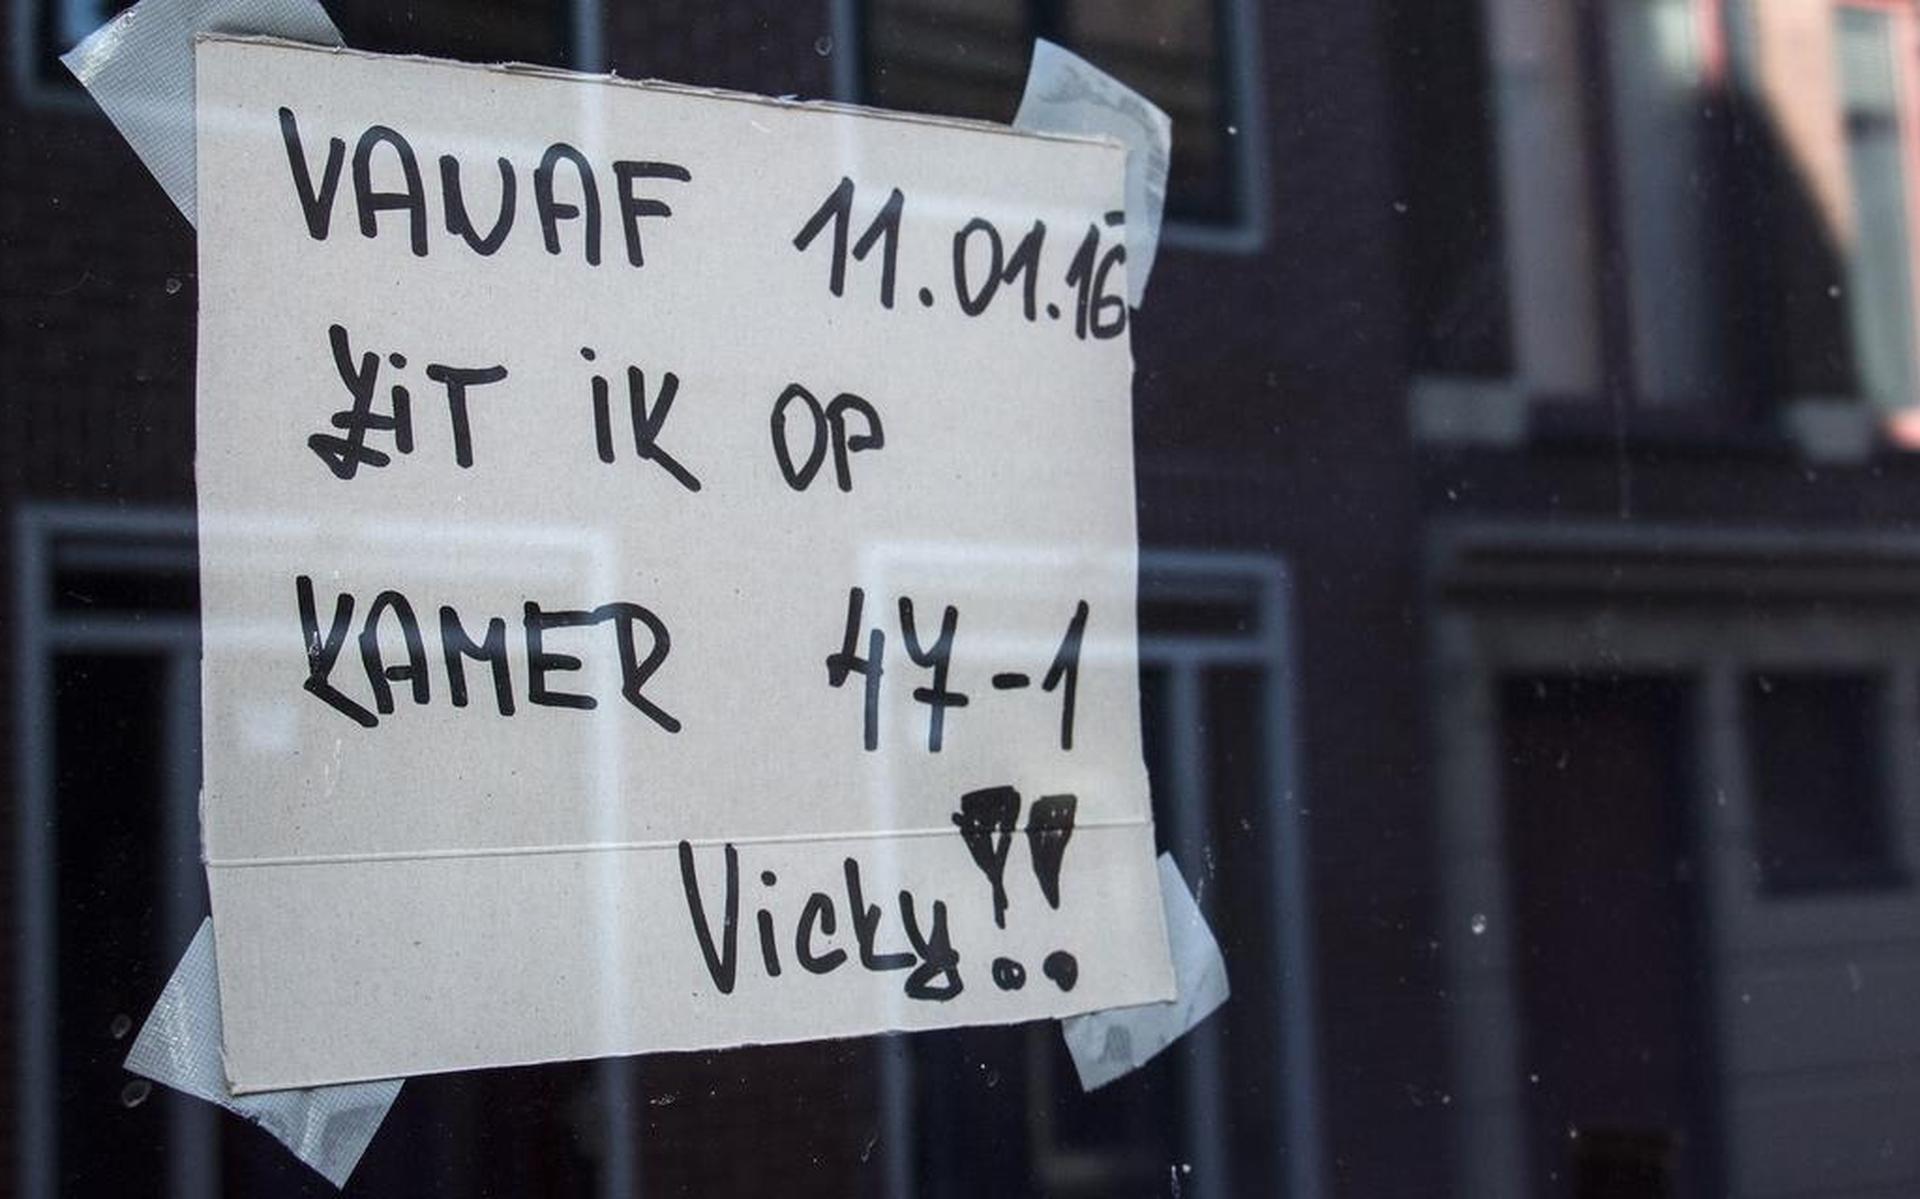 VANAF 11.01.16
ZiT iK OP
KAMER 47-1
Vicky!!